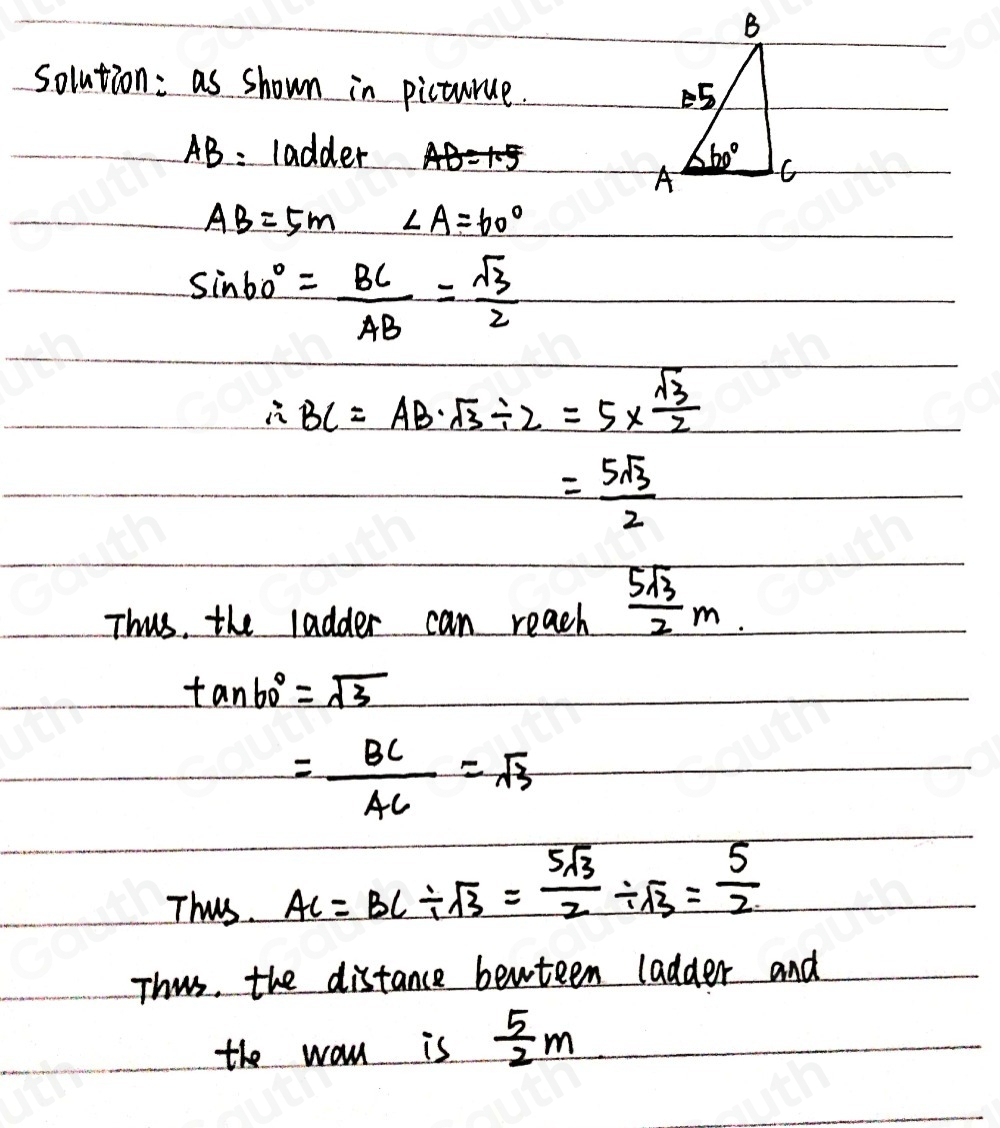 B
Solution: as shown in picturue.
5
AB: ladder ~~AB=1.5~~
60°
A C
AB=5m ∠A=60°
Sin60° = BC/AB = √3/2
∴ BC = AB·√3÷2 = 5×√3/2
= 5√3/2
Thus. the ladder can reach 5√3/2 m.
tan60° = √3
= BC/AC = √3
Thus. AC = BC÷√3 = 5√3/2 ÷√3 = 5/2.
Thus. the distance bewteen ladder and
the wall is 5/2 m
Gauth